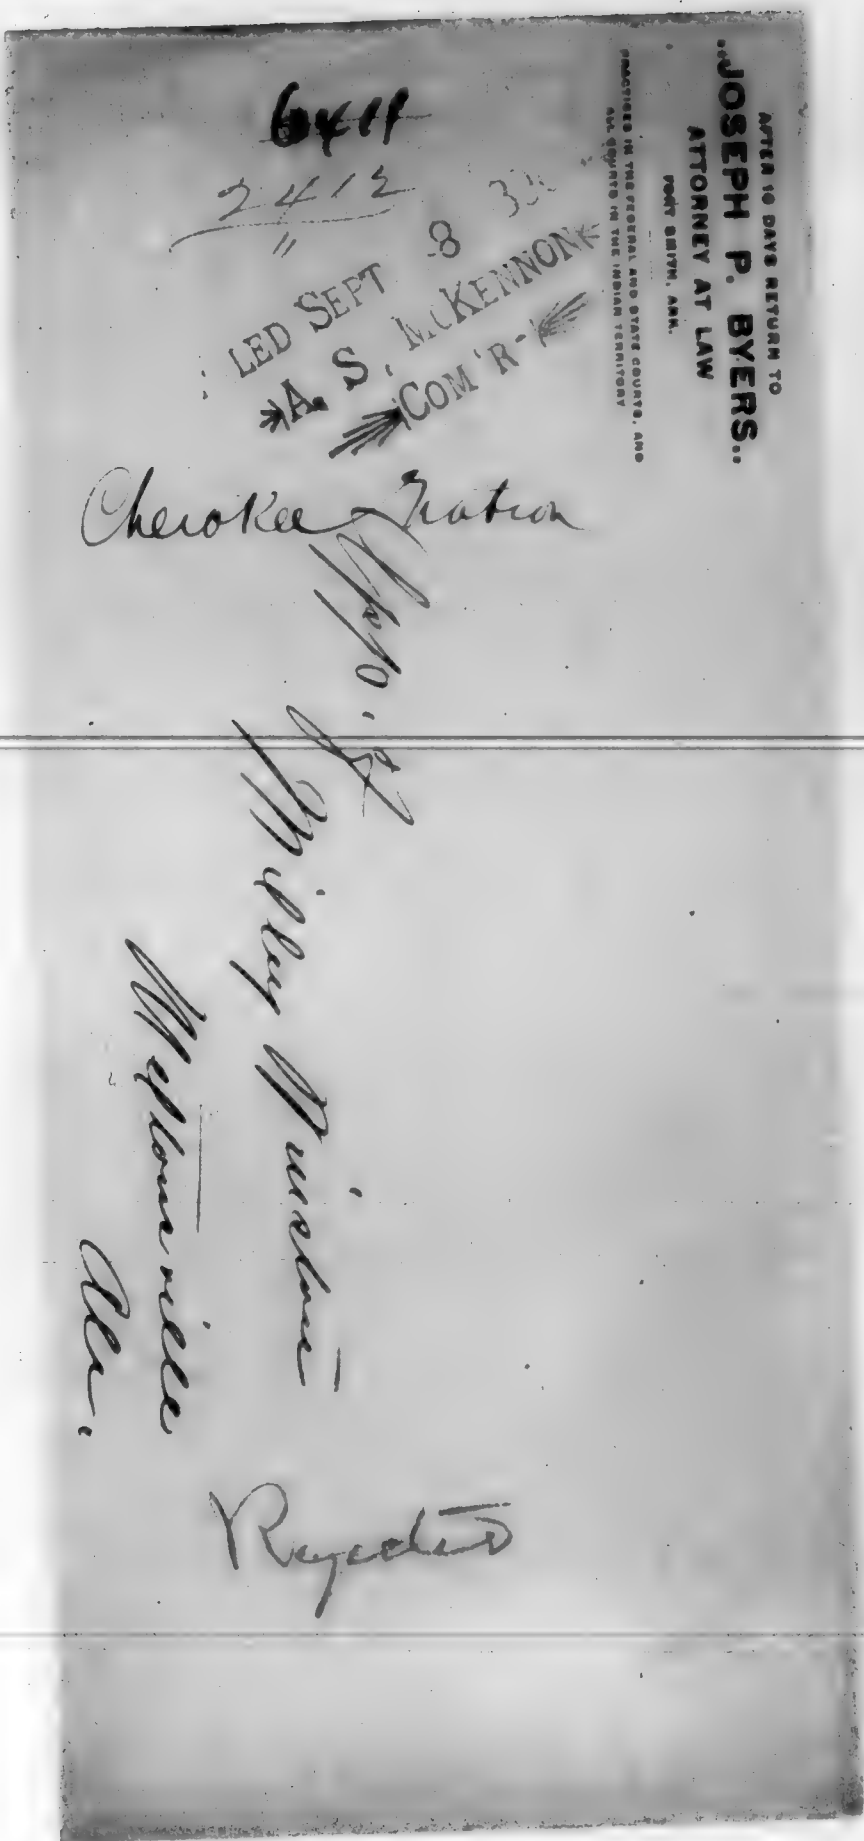 AFTER 10 DAYS RETURN TO
..JOSEPH P. BYERS..
ATTORNEY AT LAW
FORT SMITH, ARK.
PRACTICES IN THE FEDERAL AND STATE COURTS, AND
ALL COURTS IN THE INDIAN TERRITORY
2412
"
LED SEPT 8
A. S. McKENNON
COM'R
Cherokee Nation
App. of
Milley
Ala.
Rejected